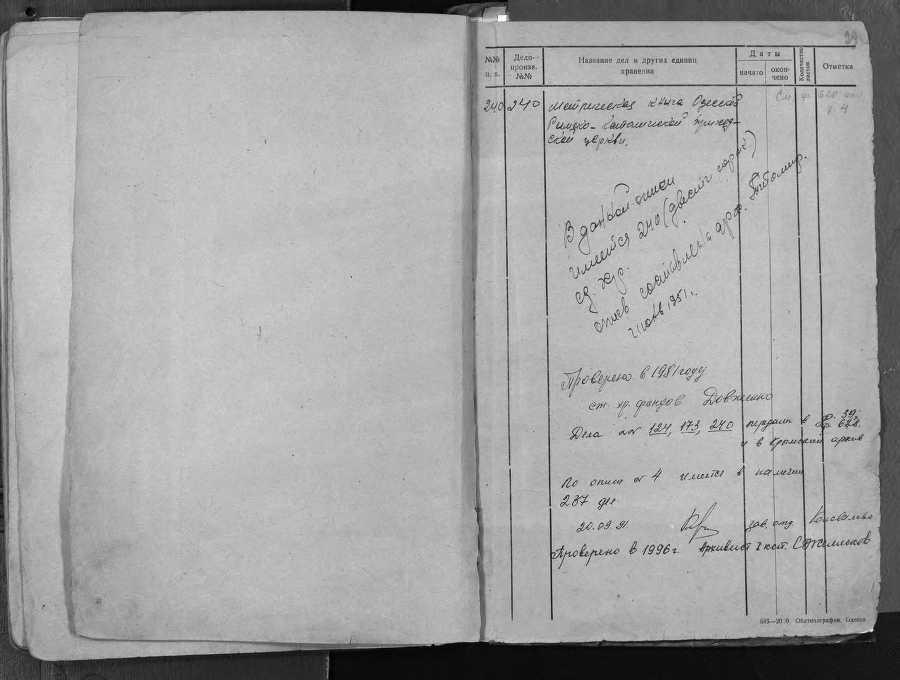 39
№№ п. п.
Дело-произв. №№
Название дел и других единиц хранения
Даты
начато
окон-чено
Количество листов
Отметка
240 240 Метрическая книга Одесской См. ф. 628 оп.
Римско-католической приход- д. 4
ской церкви.
В данной описи
имеется 240 (двести сорок)
ед. хр.
опись составлена арх.
1951г.
Проверено в 1981 году
ст. хр. фондов Довженко
Дела №№ 124, 173, 240 переданы в ф. 39, 628.
и в Крымский архив
По описи № 4 имеется в наличии
237 дел
20.09.91 зав. отд. Коновалова
Проверено в 1996 г. Архивист I кат.
Облполиграфия, Одесса